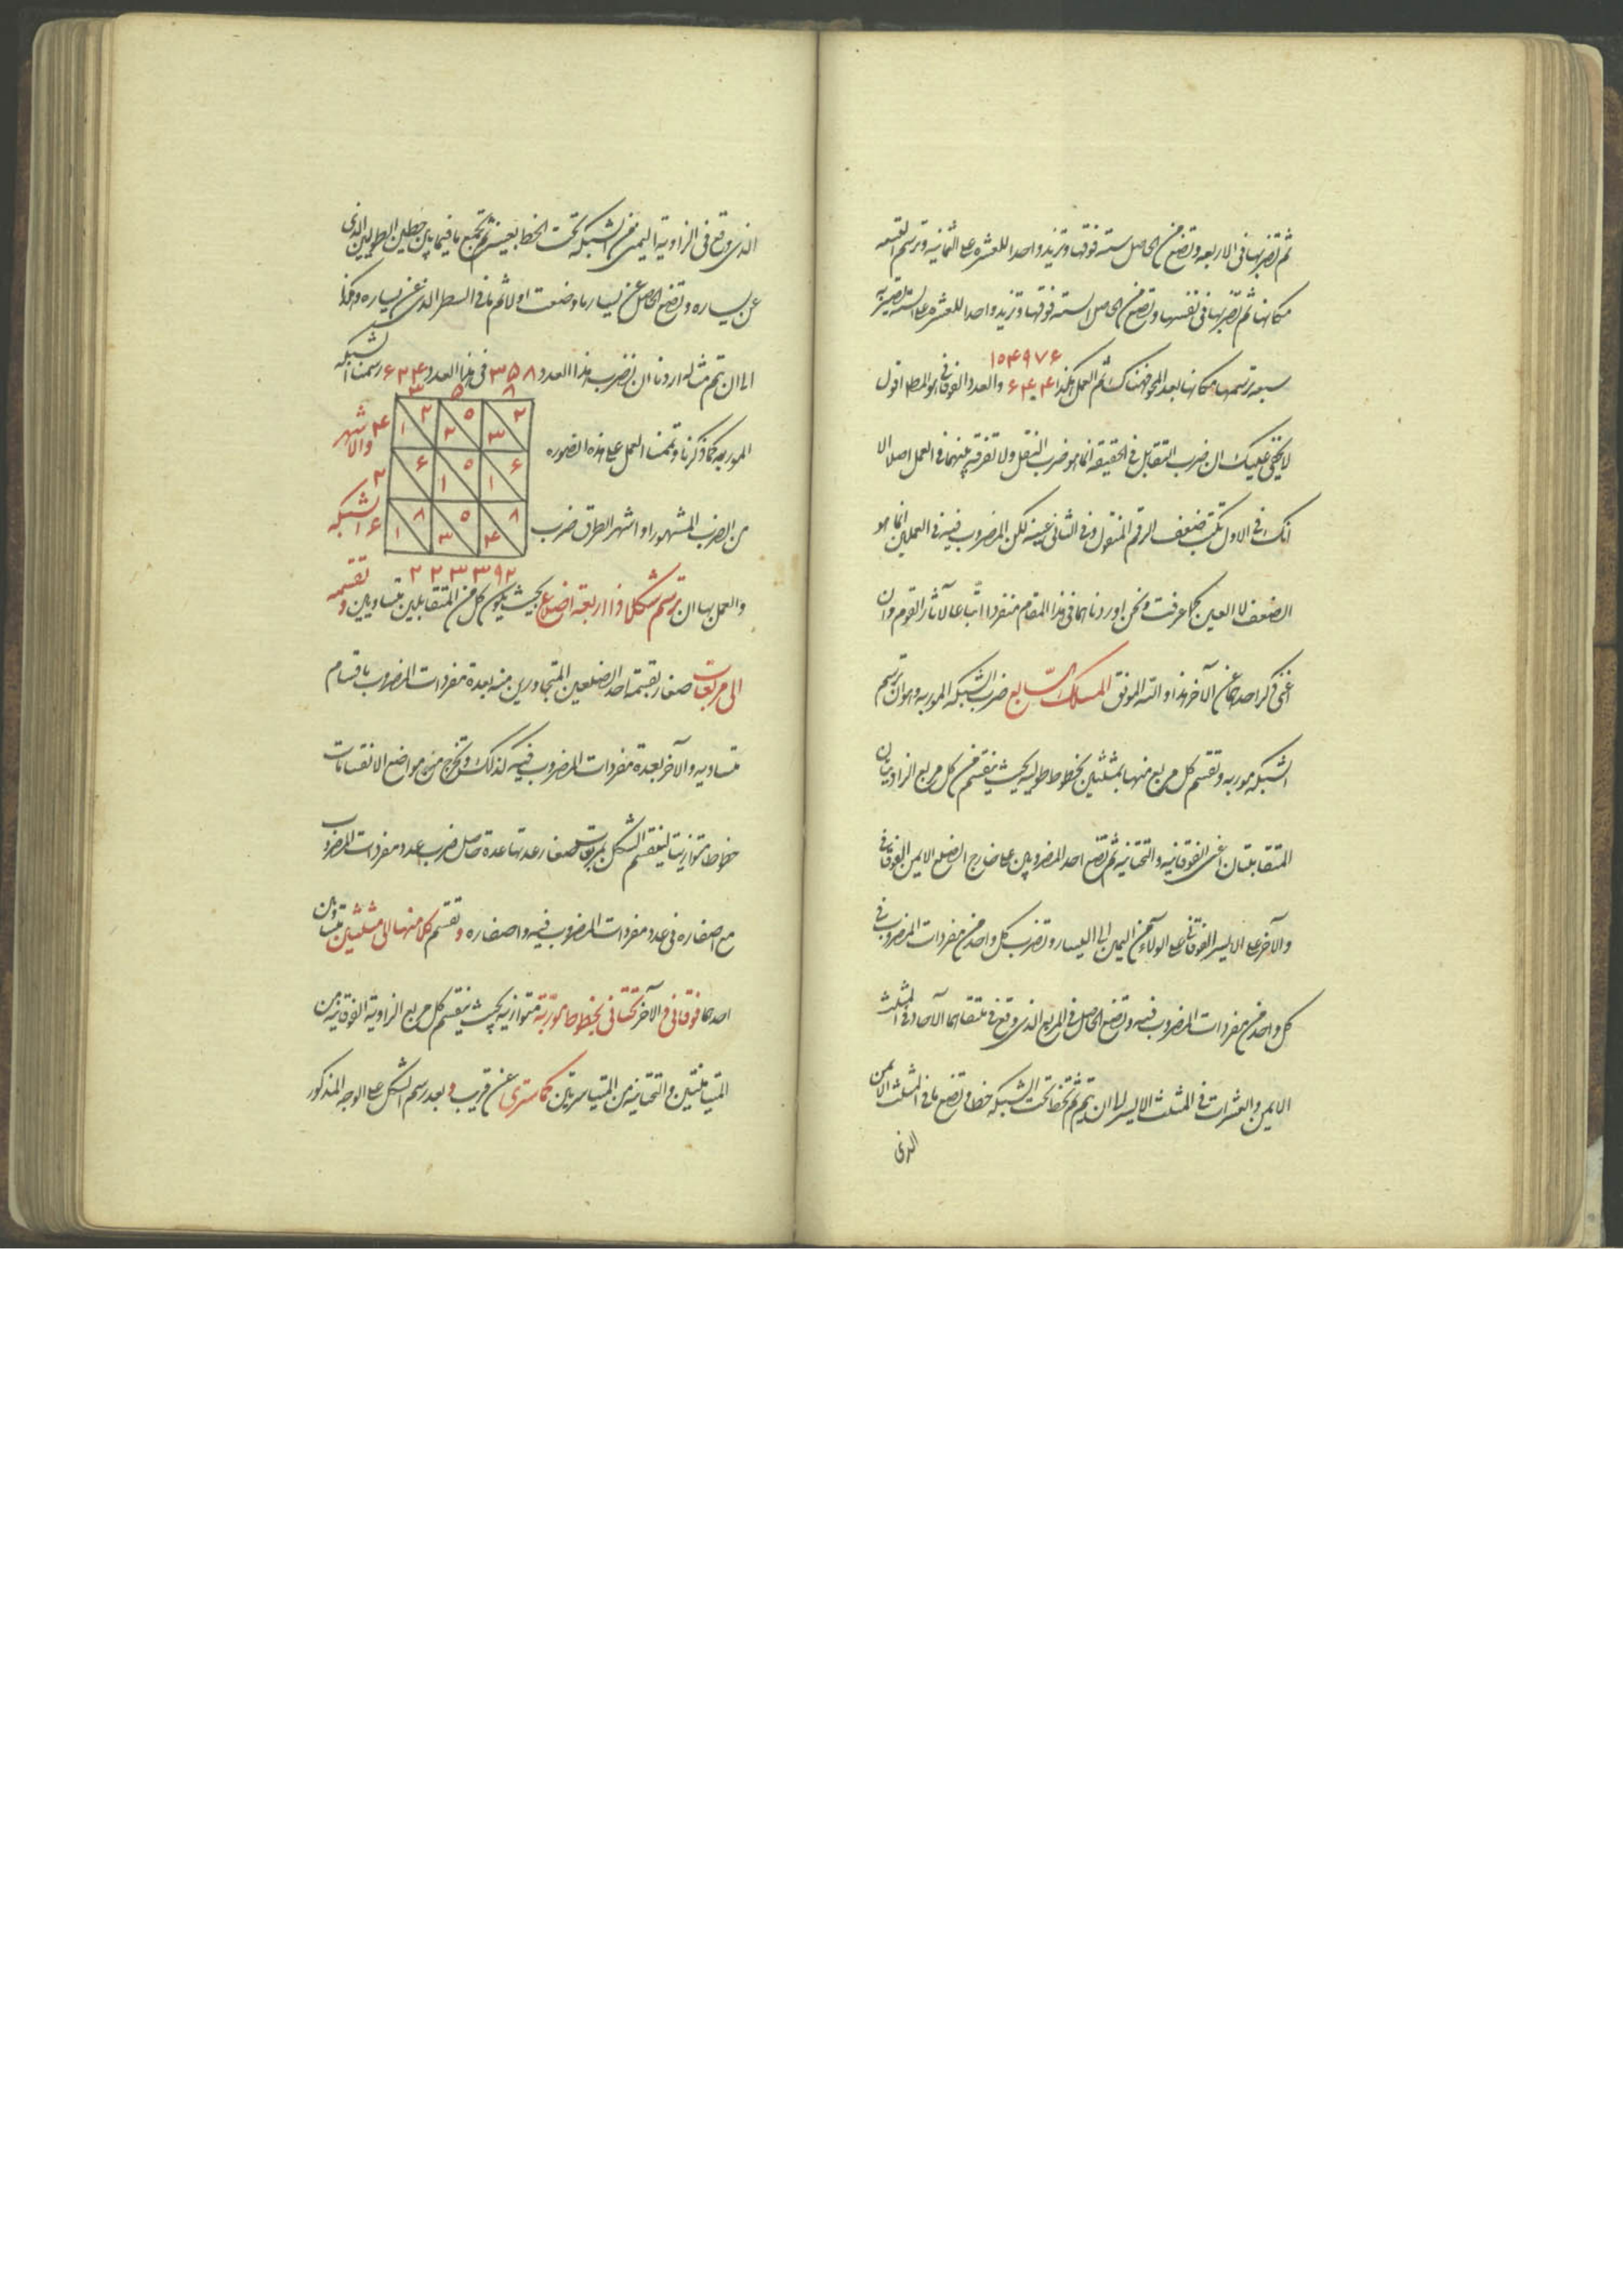 ثم تضربها فى الاربعه وتضع من الحاصل ستة فوقها وتزيد واحدا للعشره على الثمانيه وترسم التسعه
مكانها ثم تضربها فى نفسها وتضع من الحاصل الستة فوقها وتزيد واحدا للعشره على الستة
١٥٤٩٧٦
سبعه ترسمها مكانها بعد المحو فهناك تم العمل هكذا والعدد الفوقانى هو المط اقول
لا يخفى عليك ان ضرب التقابل فى الحقيقة انما هو ضرب النقل ولا تفرقة بينهما فى العمل اصلا الا
انك فى الاول تكتب ضعف الرقم المنقول وفى الثانى عينه لكن المضروب فيه فى العملين انما هو
الضعف لا العين كما عرفت ونحن اوردناهما فى هذا المقام منفردا اتباعا لآثار القوم وان
اغنى ذكر احدهما عن الآخر هذا والله الموفق المسلك السابع ضرب الشبكه الموربه وهو ان ترسم
الشبكه موربه وتقسم كل مربع منها بمثلثين بخطوط طوليه بحيث ينقسم من كل مربع الزاويتان
المتقابلتان اعنى الفوقانيه والتحتانيه ثم تضع احد المضروبين على خارج الضلع الايمن الفوقانى
والآخر على الايسر الفوقانى على الولاء من اليمين الى اليسار وتضرب كل واحد من مفردات المضروب فى
كل واحد من مفردات المضروب فيه وتضع الحاصل فى المربع الذى وقع فى ملتقاهما الآحاد فى المثلث
الايمن والعشرات فى المثلث الايسر الى ان يتم ثم تخط تحت الشبكه خطا وتضع ما فى المثلث الايمن
الذى
الذى وقع فى الزاوية اليمنى من الشبكه تحت الخط بعينه ثم تجمع ما فيما بين خطين الطوليين الذى
عن يساره وتضع الحاصل عن يسار ما وضعت اولا ثم ما فى السطر الذى عن يساره وهكذا
الى ان يتم مثاله اردنا ان نضرب هذا العدد ٣٥٨ فى هذا العدد ٦٢٤ رسمنا الشبكه
٣ ٥ ٨
٢ ١ ٥ ٢ ٢ ٣ ٤
الموربه كما ذكرنا وتممنا العمل على هذه الصوره
والاشهر
٦ ٥ ١ ٦ ١ ٢
من الضرب المشهور او اشهر الطرق ضرب
الشبكه
٨ ١ ٥ ٣ ٨ ٤ ٦
٢ ٢ ٣ ٣ ٩ ٢
والعمل بها ان ترسم شكلا ذا اربعة اضلاع بحيث يكون كل من المتقابلين متساويين وتقسمه
الى مربعات صغار بقسمة احد الضلعين المتجاورين منه بعدة مفردات المضروب باقسام
متساويه والآخر بعدة مفردات المضروب فيه كذلك وتخرج من مواضع الانقسامات
خطوطا متوازية لينقسم الشكل بمربعات صغار عدتها عدة حاصل ضرب عدد مفردات المضروب
مع اصفاره فى عدد مفردات المضروب فيه واصفاره وتقسم كلا منها الى مثلثين متساويين
احدهما فوقانى والآخر تحتانى بخطوط موربة متوازيه بحيث ينقسم كل مربع الزاوية الفوقانيه من
المتيامنتين والتحتانيه من المتياسرتين كما سترى عن قريب وبعد رسم الشكل على الوجه المذكور